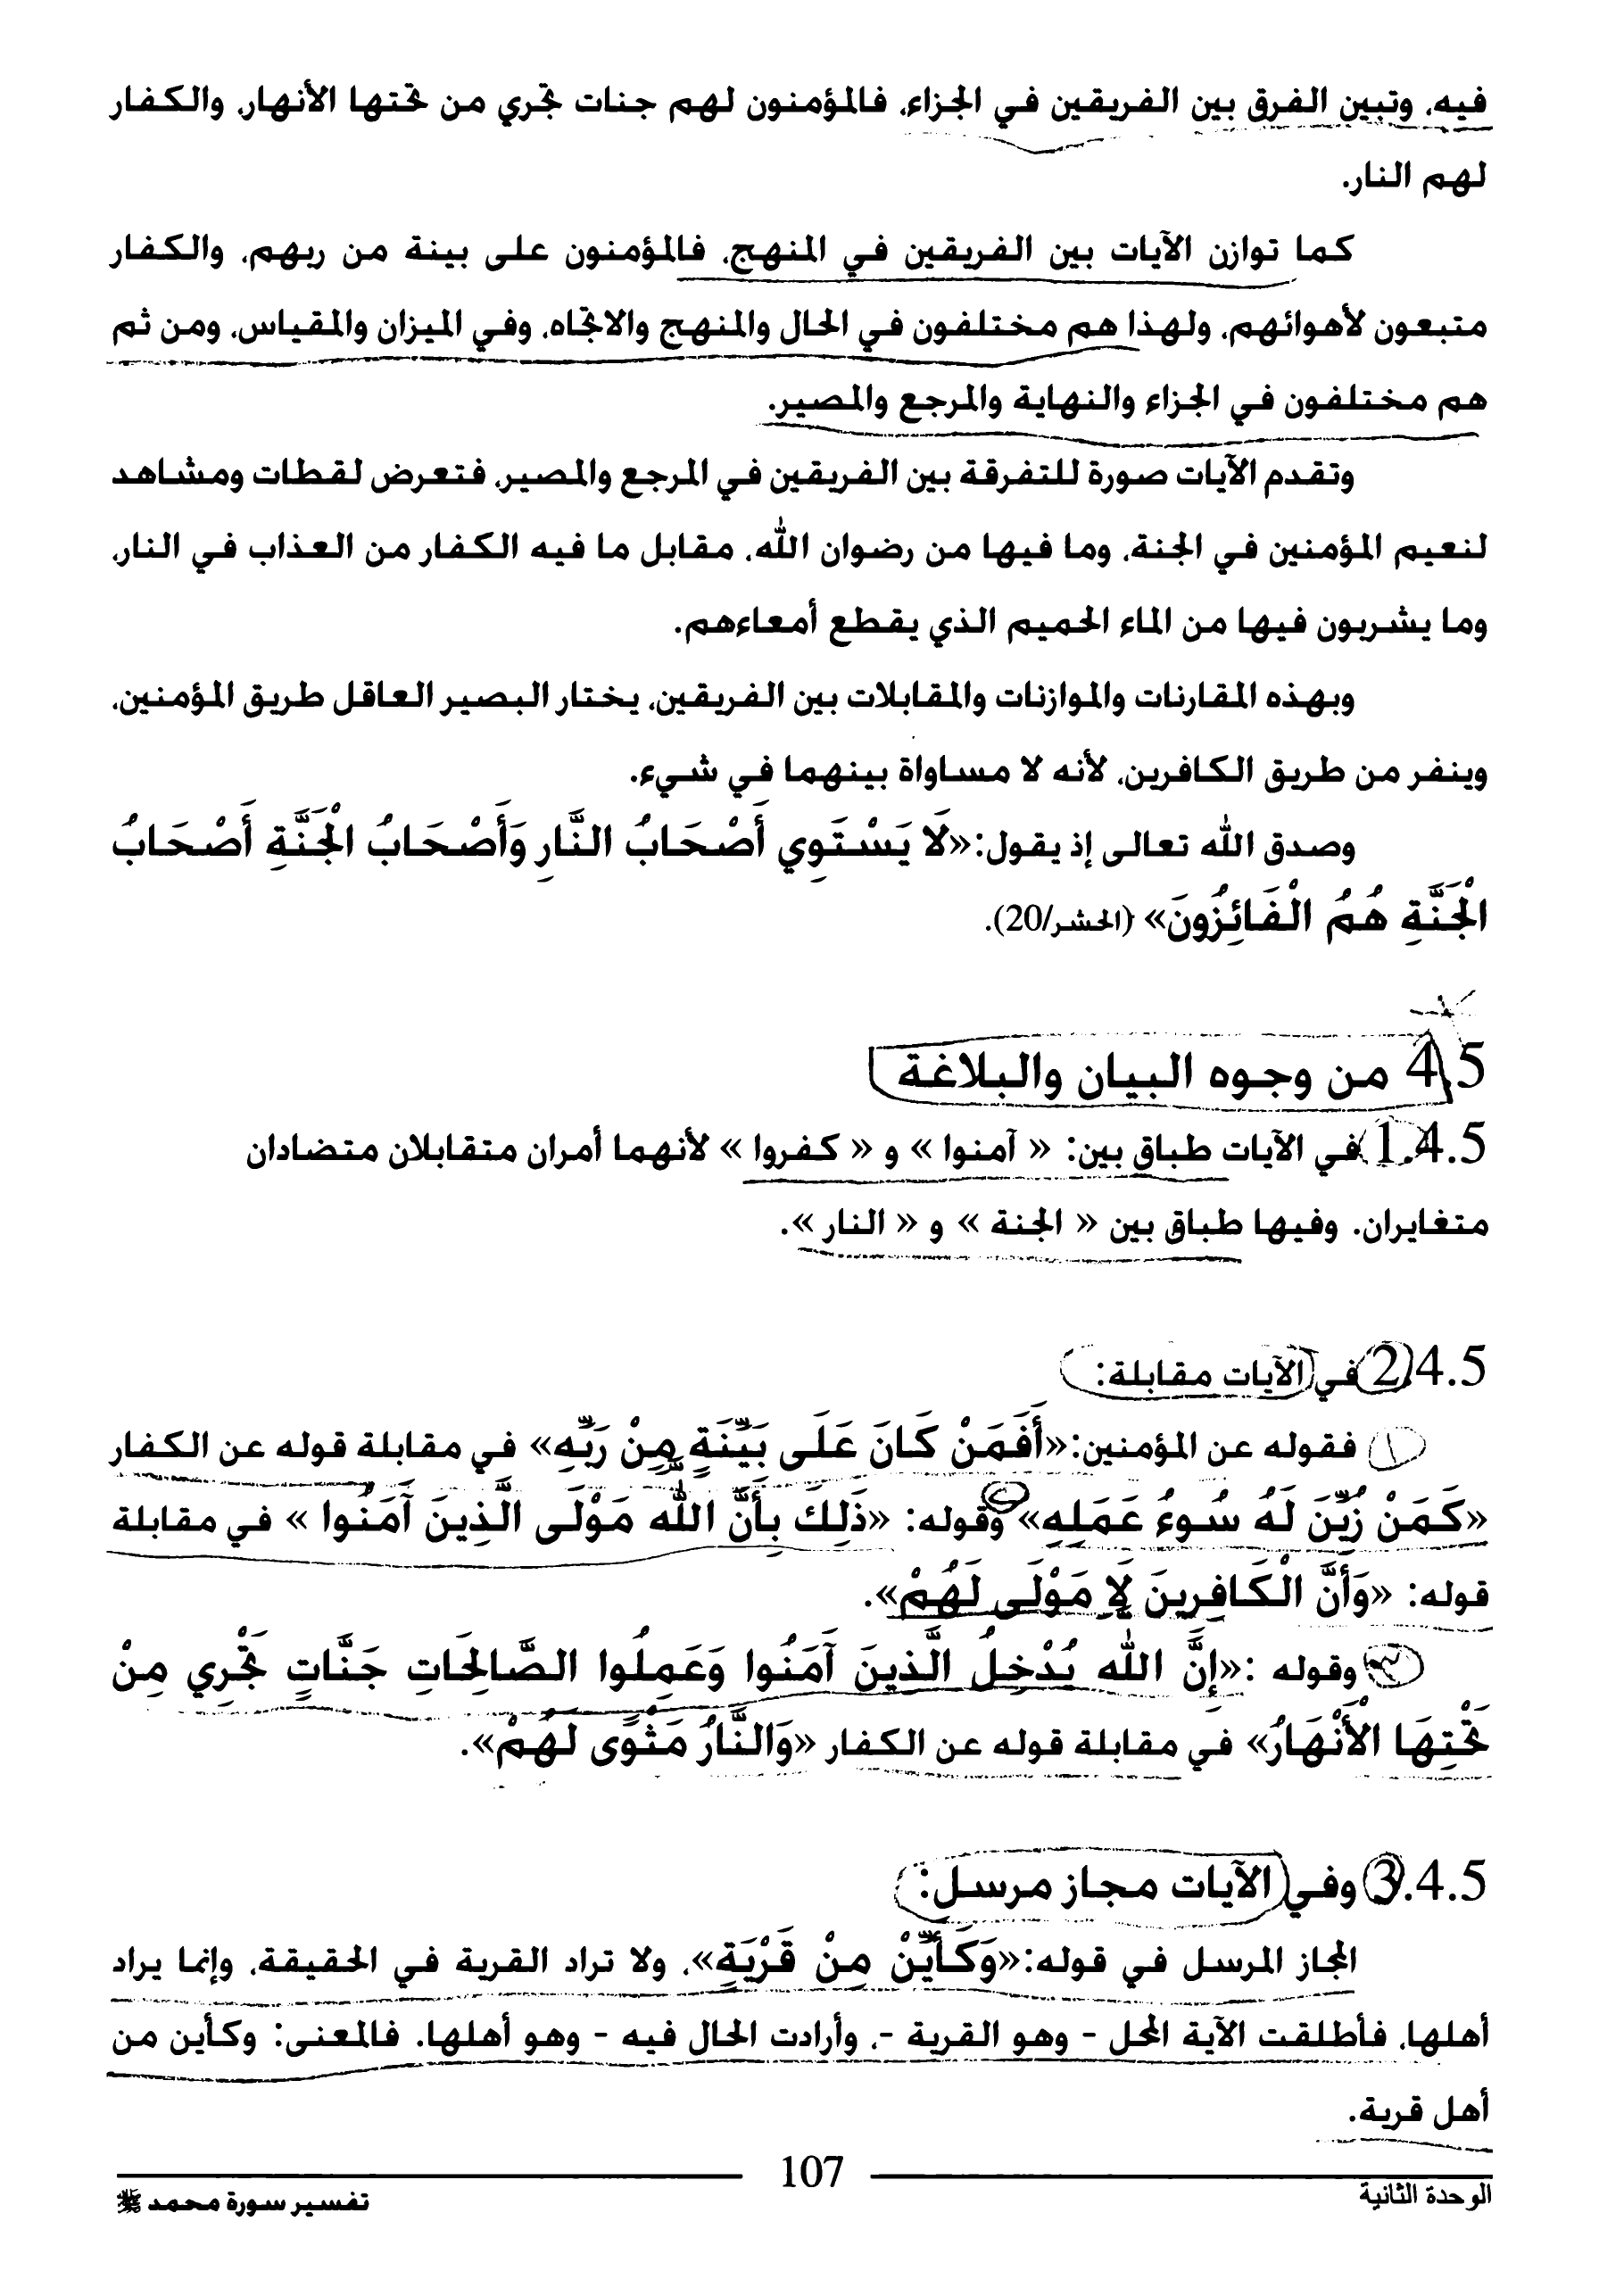 فيه، وتبين الفرق بين الفريقين في الجزاء، فالمؤمنون لهم جنات تجري من تحتها الأنهار، والكفار
لهم النار.
كما توازن الآيات بين الفريقين في المنهج، فالمؤمنون على بينة من ربهم، والكفار
متبعون لأهوائهم، ولهذا هم مختلفون في الحال والمنهج والاتجاه، وفي الميزان والمقياس، ومن ثم
هم مختلفون في الجزاء والنهاية والمرجع والمصير.
وتقدم الآيات صورة للتفرقة بين الفريقين في المرجع والمصير، فتعرض لقطات ومشاهد
لنعيم المؤمنين في الجنة، وما فيها من رضوان الله، مقابل ما فيه الكفار من العذاب في النار،
وما يشربون فيها من الماء الحميم الذي يقطع أمعاءهم.
وبهذه المقارنات والموازنات والمقابلات بين الفريقين، يختار البصير العاقل طريق المؤمنين،
وينفر من طريق الكافرين، لأنه لا مساواة بينهما في شيء.
وصدق الله تعالى إذ يقول:«لَا يَسْتَوِي أَصْحَابُ النَّارِ وَأَصْحَابُ الْجَنَّةِ أَصْحَابُ
الْجَنَّةِ هُمُ الْفَائِزُونَ» (الحشر/20).
4.5 من وجوه البيان والبلاغة
1.4.5 في الآيات طباق بين: « آمنوا » و « كفروا » لأنهما أمران متقابلان متضادان
متغايران. وفيها طباق بين « الجنة » و « النار ».
2.4.5 في الآيات مقابلة:
١ فقوله عن المؤمنين:«أَفَمَنْ كَانَ عَلَى بَيِّنَةٍ مِنْ رَبِّهِ» في مقابلة قوله عن الكفار
«كَمَنْ زُيِّنَ لَهُ سُوءُ عَمَلِهِ» وقوله: «ذَلِكَ بِأَنَّ الله مَوْلَى الَّذِينَ آمَنُوا » في مقابلة
قوله: «وَأَنَّ الْكَافِرِينَ لَا مَوْلَى لَهُمْ».
وقوله :«إِنَّ الله يُدْخِلُ الَّذِينَ آمَنُوا وَعَمِلُوا الصَّالِحَاتِ جَنَّاتٍ تَجْرِي مِنْ
تَحْتِهَا الْأَنْهَارُ» في مقابلة قوله عن الكفار «وَالنَّارُ مَثْوًى لَهُمْ».
3.4.5 وفي الآيات مجاز مرسل:
المجاز المرسل في قوله:«وَكَأَيِّنْ مِنْ قَرْيَةٍ»، ولا تراد القرية في الحقيقة، وإنما يراد
أهلها، فأطلقت الآية المحل - وهو القرية -، وأرادت الحال فيه - وهو أهلها. فالمعنى: وكأين من
أهل قرية.
107
الوحدة الثانية
تفسير سورة محمد ﷺ